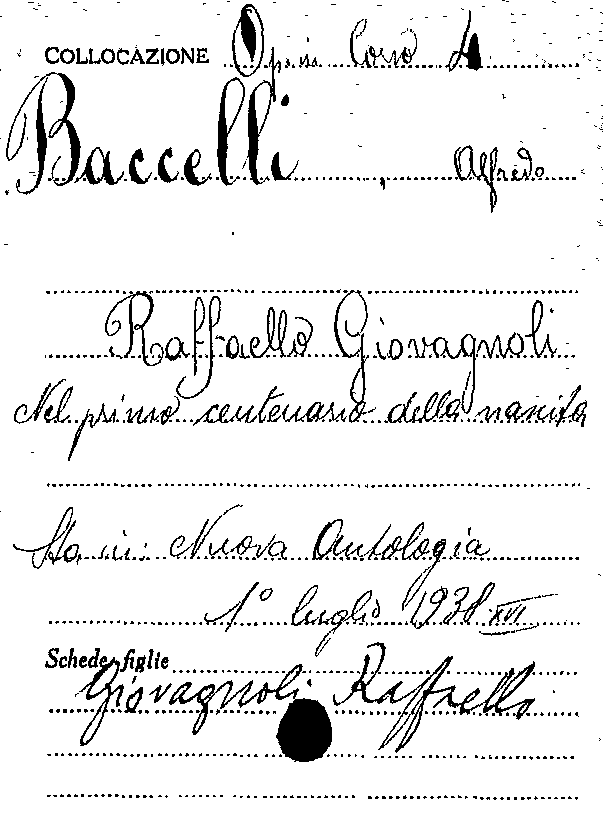 COLLOCAZIONE Opus. Corso 4
Baccelli, Alfredo
Raffaello Giovagnoli
Nel primo centenario della nascita
Sta in: Nuova Antologia
1° luglio 1938 XVI
Schede figlie
Giovagnoli Raffaello